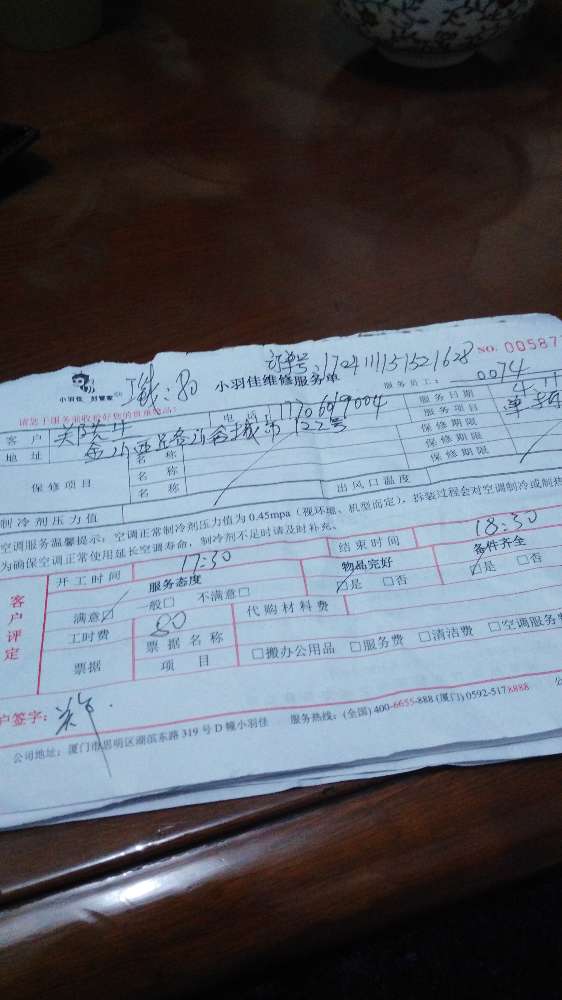 订单号:1724111151521628
小羽佳 好管家 现:80 小羽佳维修服务单 NO. 00587
服务员工: 0074
请您于服务前收检好您的贵重物品!
客 户 电 话 服务日期 4.11
地 址 服务项目
保修项目 名 称 保修期限
名 称 保修期限
名 称 保修期限
制冷剂压力值 出风口温度
空调服务温馨提示:空调正常制冷剂压力值为0.45mpa(视环境、机型而定),拆装过程会对空调制冷或制热
为确保空调正常使用延长空调寿命,制冷剂不足时请及时补充。
客户评定
开工时间 17:30 结束时间 18:30
服务态度 物品完好 备件齐全
满意☑ 一般□ 不满意□ ☑是 □否 ☑是 □否
工时费 80 代购材料费
票据 票据名称
项 目 □搬办公用品 □服务费 □清洁费 □空调服务费
户签字:
公司地址:厦门市思明区湖滨东路319号D幢小羽佳 服务热线:(全国)400-6655-888 (厦门)0592-5178888 公